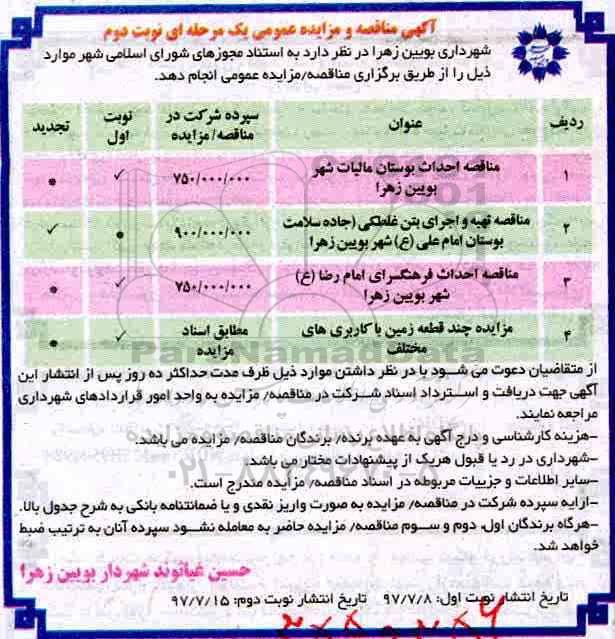 آگهی مناقصه و مزایده عمومی یک مرحله ای نوبت دوم
شهرداری بویین زهرا در نظر دارد به استناد مجوزهای شورای اسلامی شهر موارد
ذیل را از طریق برگزاری مناقصه/مزایده عمومی انجام دهد.
ردیف عنوان سپرده شرکت در مناقصه/مزایده نوبت اول تجدید
۱ مناقصه احداث بوستان مالیات شهر بویین زهرا ۷۵۰/۰۰۰/۰۰۰ ✓ *
۲ مناقصه تهیه و اجرای بتن غلطکی (جاده سلامت بوستان امام علی (ع) شهر بویین زهرا ۹۰۰/۰۰۰/۰۰۰ * ✓
۳ مناقصه احداث فرهنگسرای امام رضا (ع) شهر بویین زهرا ۷۵۰/۰۰۰/۰۰۰ ✓ *
۴ مزایده چند قطعه زمین با کاربری های مختلف مطابق اسناد مزایده ✓ *
ParsNamadData
از متقاضیان دعوت می شود با در نظر داشتن موارد ذیل ظرف مدت حداکثر ده روز پس از انتشار این
آگهی جهت دریافت و استرداد اسناد شرکت در مناقصه/ مزایده به واحد امور قراردادهای شهرداری
مراجعه نمایند.
-هزینه کارشناسی و درج آگهی به عهده برنده/ برندگان مناقصه/ مزایده می باشد.
-شهرداری در رد یا قبول هریک از پیشنهادات مختار می باشد.
-سایر اطلاعات و جزییات مربوطه در اسناد مناقصه/ مزایده مندرج است.
-ارایه سپرده شرکت در مناقصه/ مزایده به صورت واریز نقدی و یا ضمانتنامه بانکی به شرح جدول بالا.
-هرگاه برندگان اول، دوم و سوم مناقصه/ مزایده حاضر به معامله نشود سپرده آنان به ترتیب ضبط
خواهد شد.
حسین غیاثوند شهردار بویین زهرا
تاریخ انتشار نوبت اول: ۹۷/۷/۸ تاریخ انتشار نوبت دوم: ۹۷/۷/۱۵